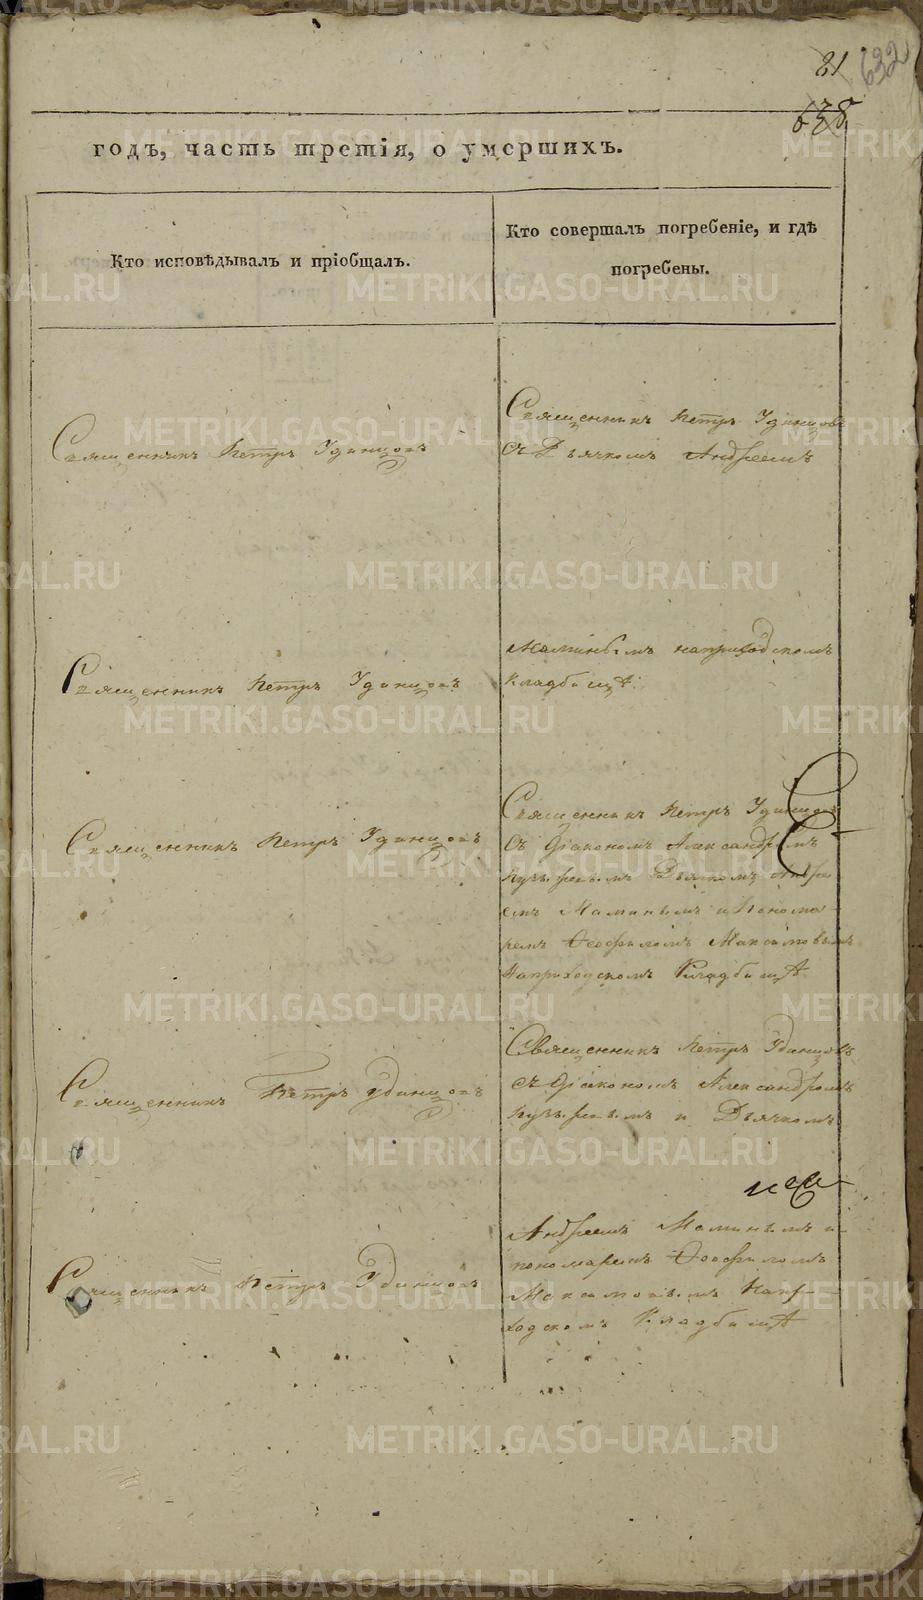 21 632
638
годъ, часть третія, о умершихъ.
Кто исповѣдывалъ и пріобщалъ.
Кто совершалъ погребеніе, и гдѣ
погребены.
Священникъ Петръ Удинцовъ
Священникъ Петръ Удинцовъ
съ Дьячкомъ Андреемъ
Священникъ Петръ Удинцовъ
Маминымъ наприходскомъ
Кладбищѣ.
Священникъ Петръ Удинцовъ
Священникъ Петръ Удинцовъ
Съ Діакономъ Александромъ
Дьячкомъ Андре
емъ Маминымъ и Понома
ремъ Ѳеофиломъ Максимовымъ
Наприходскомъ Кладбищѣ
Священникъ Петръ Удинцовъ
Священникъ Петръ Удинцовъ
съ Діакономъ Александромъ
и Дьячкомъ
Священникъ Петръ Удинцовъ
Андреемъ Маминымъ и
пономаремъ Ѳеофиломъ
Максимовымъ Напри
ходскомъ Кладбищѣ
METRIKI.GASO-URAL.RU